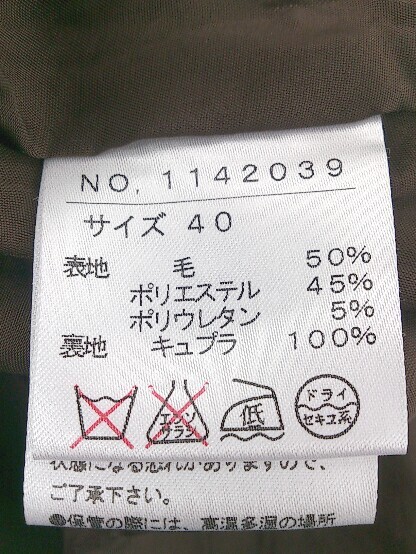 NO. 1142039
サイズ 40
表地 毛 50%
ポリエステル 45%
ポリウレタン 5%
裏地 キュプラ 100%
エンソ サラシ
低
ドライ
セキユ系
状態になる恐れがありますので、
ご了承下さい。
●保管の際には、高温多湿の場所